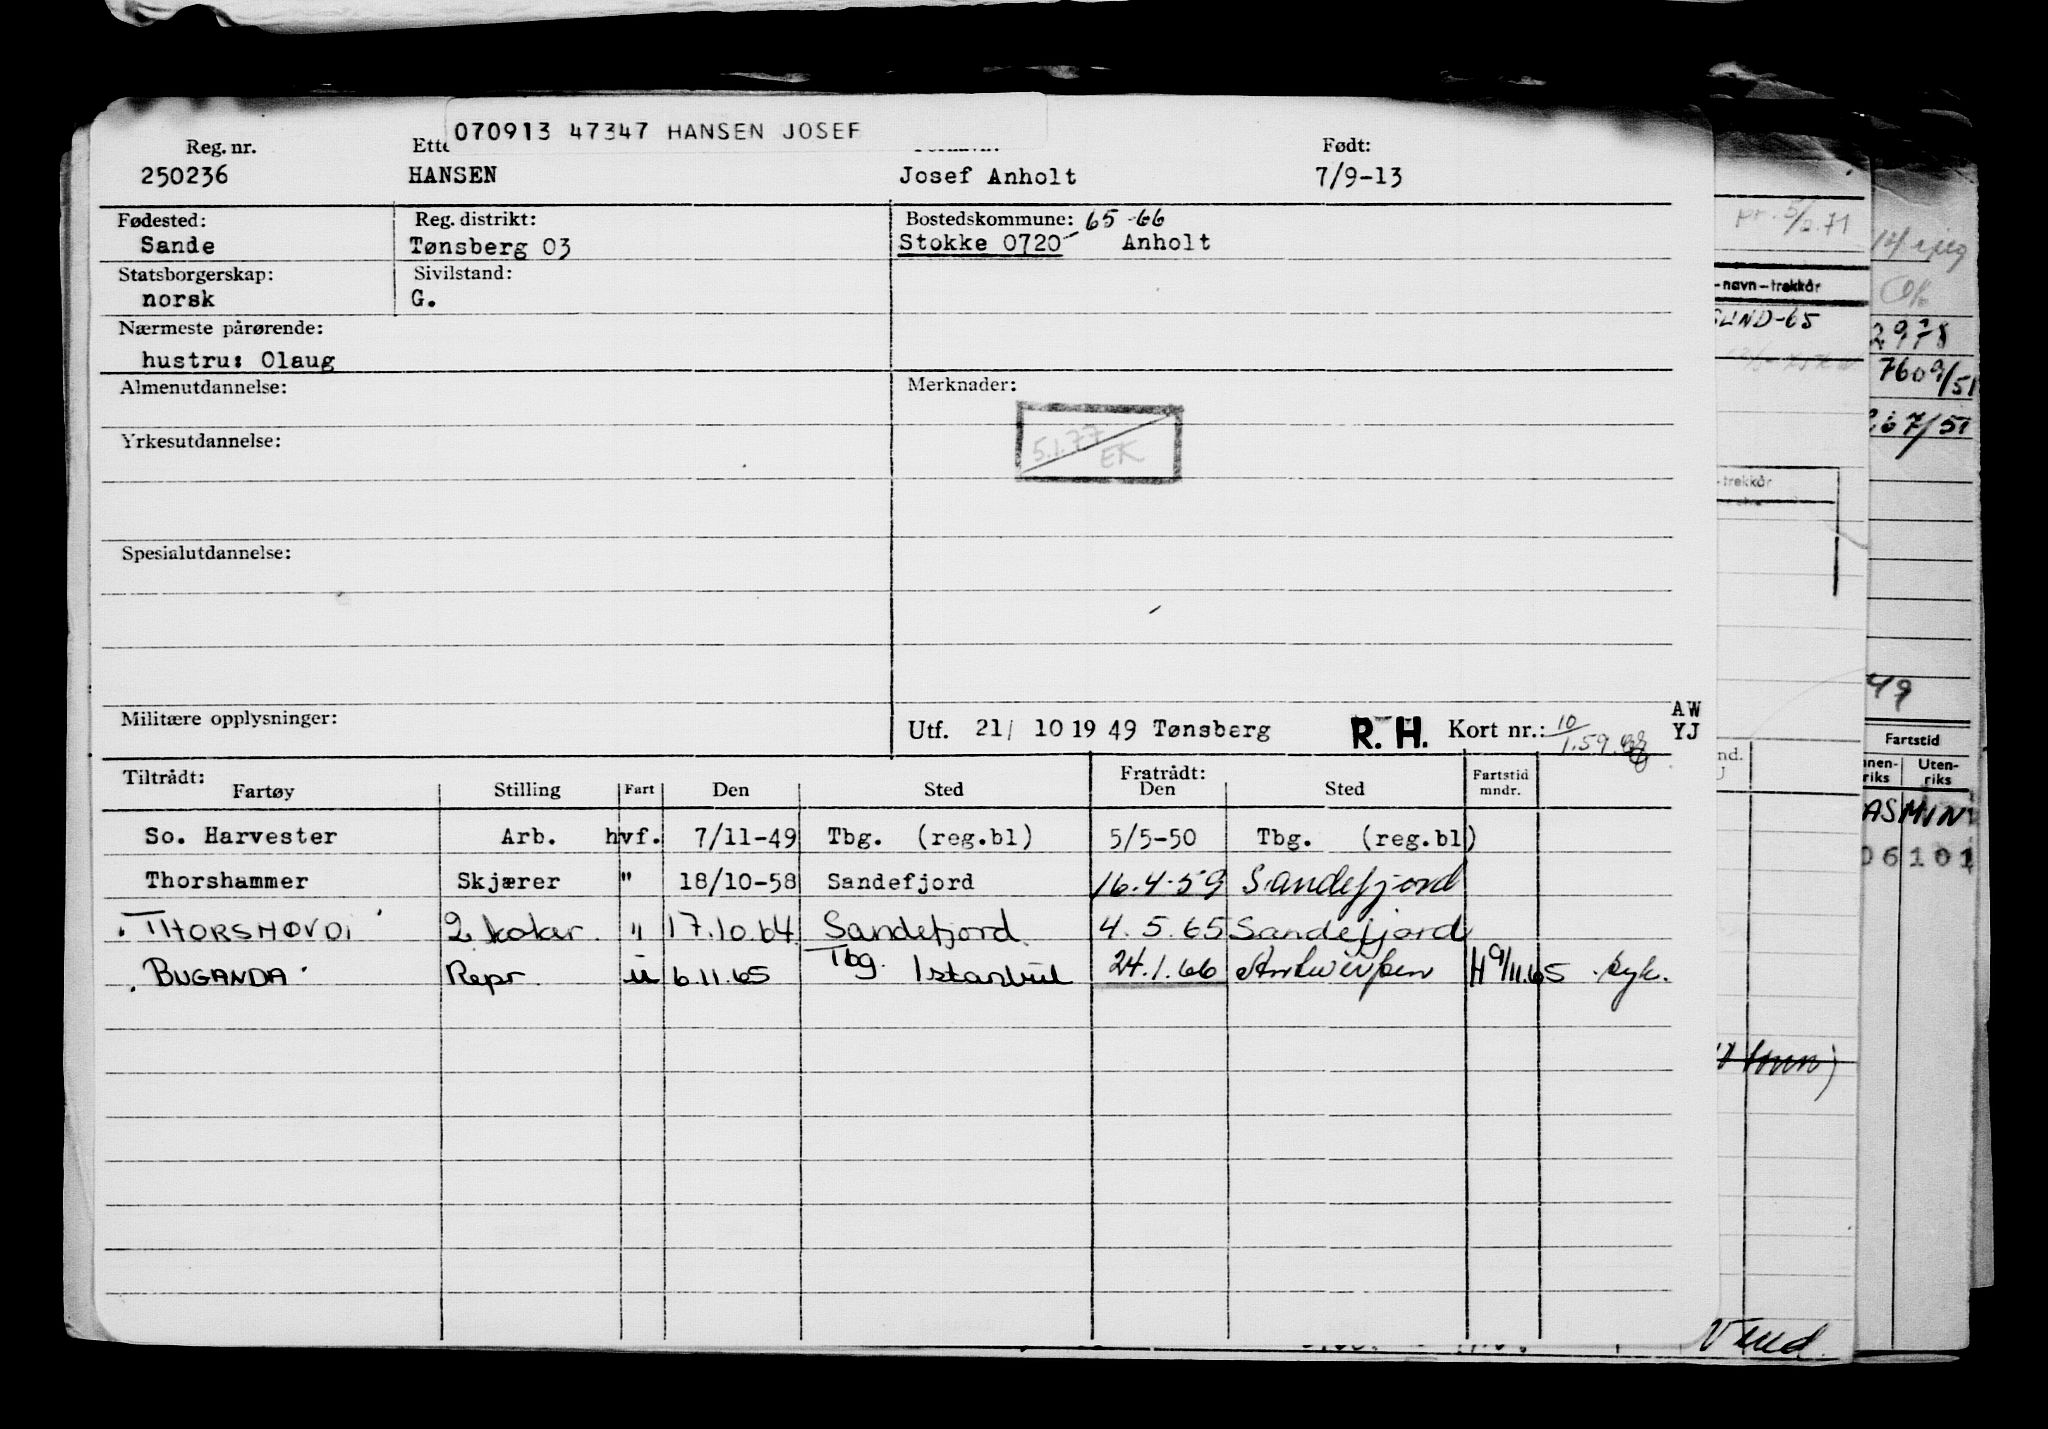 070913 47347 HANSEN JOSEF
Reg. nr. Født:
250236 HANSEN Josef Anholt 7/9-13
Fødested: Reg. distrikt: Bostedskommune: 65-66
Sande Tønsberg 03 Stokke 0720 Anholt
Statsborgerskap: Sivilstand:
norsk G.
Nærmeste pårørende:
hustru: Olaug
Almenutdannelse: Merknader:
5.1.77 EK
Yrkesutdannelse:
Spesialutdannelse:
Militære opplysninger: Utf. 21/ 10 19 49 Tønsberg R. H. Kort nr.: 10/1.59
AW
YJ
Tiltrådt: Fratrådt:
Fartøy Stilling Fart Den Sted Den Sted Fartstid mndr.
So. Harvester Arb. hvf. 7/11-49 Tbg. (reg.bl) 5/5-50 Tbg. (reg.bl)
Thorshammer Skjærer " 18/10-58 Sandefjord 16.4.59 Sandefjord
THORSHØVDI 2 koker " 17.10.64 Sandefjord 4.5.65 Sandefjord
BUGANDA Repr. u 6.11.65 Tbg. Istanbul 24.1.66 Antwerpen H 9/11.65 syk.
pr. 5/2.71
-navn-trekkår
SUND-65
-trekkår
nd.
Vend
2978
7609/51
67/51
49
Fartstid
nnen-riks Uten-riks
ASMIN
06101